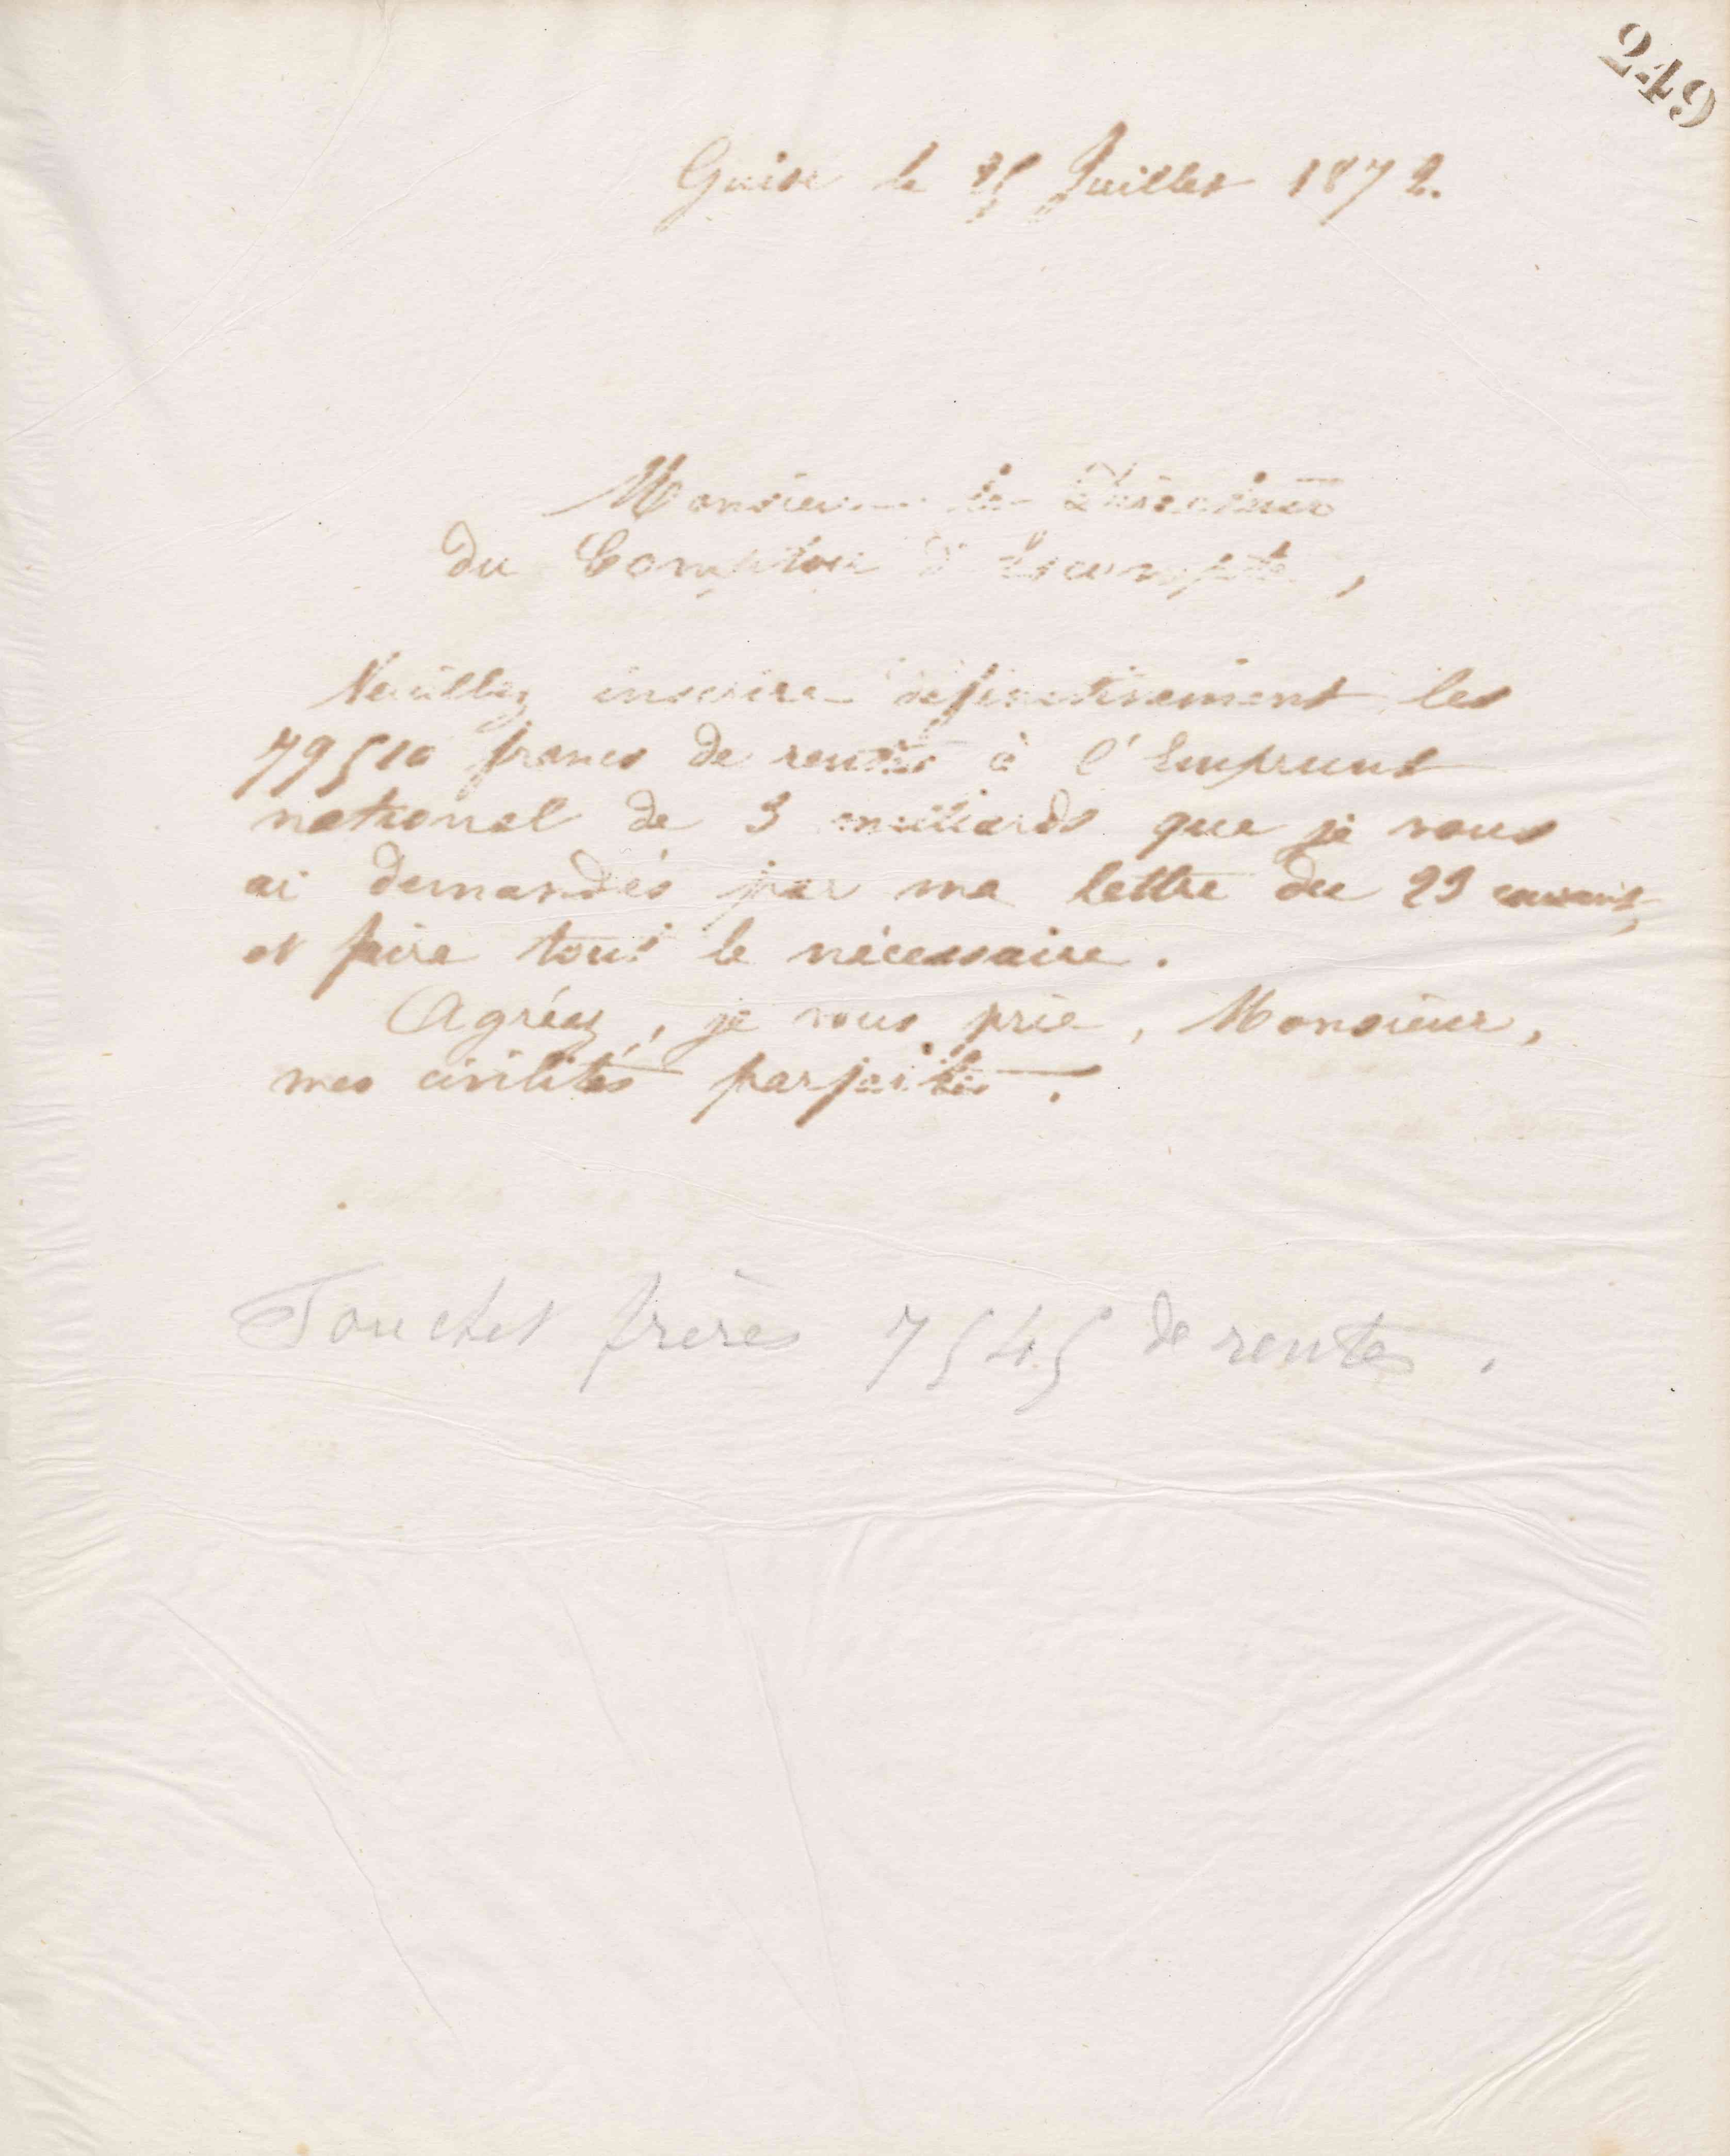 249
Guise le 25 Juillet 1872.
Monsieur le Directeur
du Comptoir d'Escompte,
Veuillez inscrire définitivement les
79510 francs de rentes à l'Emprunt
national de 3 milliards que je vous
ai demandés par ma lettre du 23 courant,
et faire tout le nécessaire.
Agréez, je vous prie, Monsieur,
mes civilités parfaites.
Touchet frères 7545 de rentes.